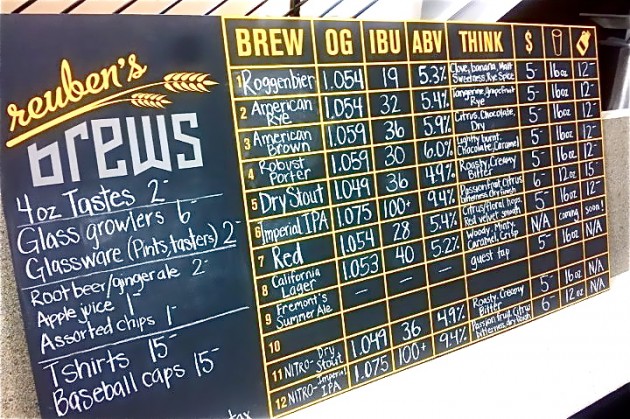 reuben's
brews
4oz Tastes 2-
Glass growlers 6-
Glassware (Pints, tasters) 2
Root beer/ginger ale 2-
Apple juice 1-
Assorted chips 1-
Tshirts 15-
Baseball caps 15-
tax
BREW OG IBU ABV THINK $
1 Roggenbier 1.054 19 5.3% Clove, banana, Malt Sweetness, Rye Spice 5- 16oz 12-
2 American Rye 1.054 32 5.4% Tangerine, grapefruit Rye 5- 16oz 12-
3 American Brown 1.059 36 5.9% Citrus, Chocolate, Dry 5- 16oz 12-
4 Robust Porter 1.059 30 6.0% Lightly burnt, Chocolate, Caramel 5- 16oz 12-
5 Dry Stout 1.049 36 4.9% Roasty, Creamy Bitter 5- 16oz 12-
6 Imperial IPA 1.075 100+ 9.4% Passionfruit, Citrus bitterness, dry finish 6- 12oz 15-
7 Red 1.054 28 5.4% Citrus/floral hops, Red velvet smooth 5- 16oz 12-
8 California Lager 1.053 40 5.2% Woody, Minty, Caramel, Crisp N/A coming soon!
9 Fremont's Summer Ale — — — guest tap 5- 16oz N/A
10
11 NITRO- Dry Stout 1.049 36 4.9% Roasty, Creamy Bitter 5- 16oz N/A
12 NITRO- Imperial IPA 1.075 100+ 9.4% Passion fruit, Citrus bitterness, dry finish 6- 12oz N/A